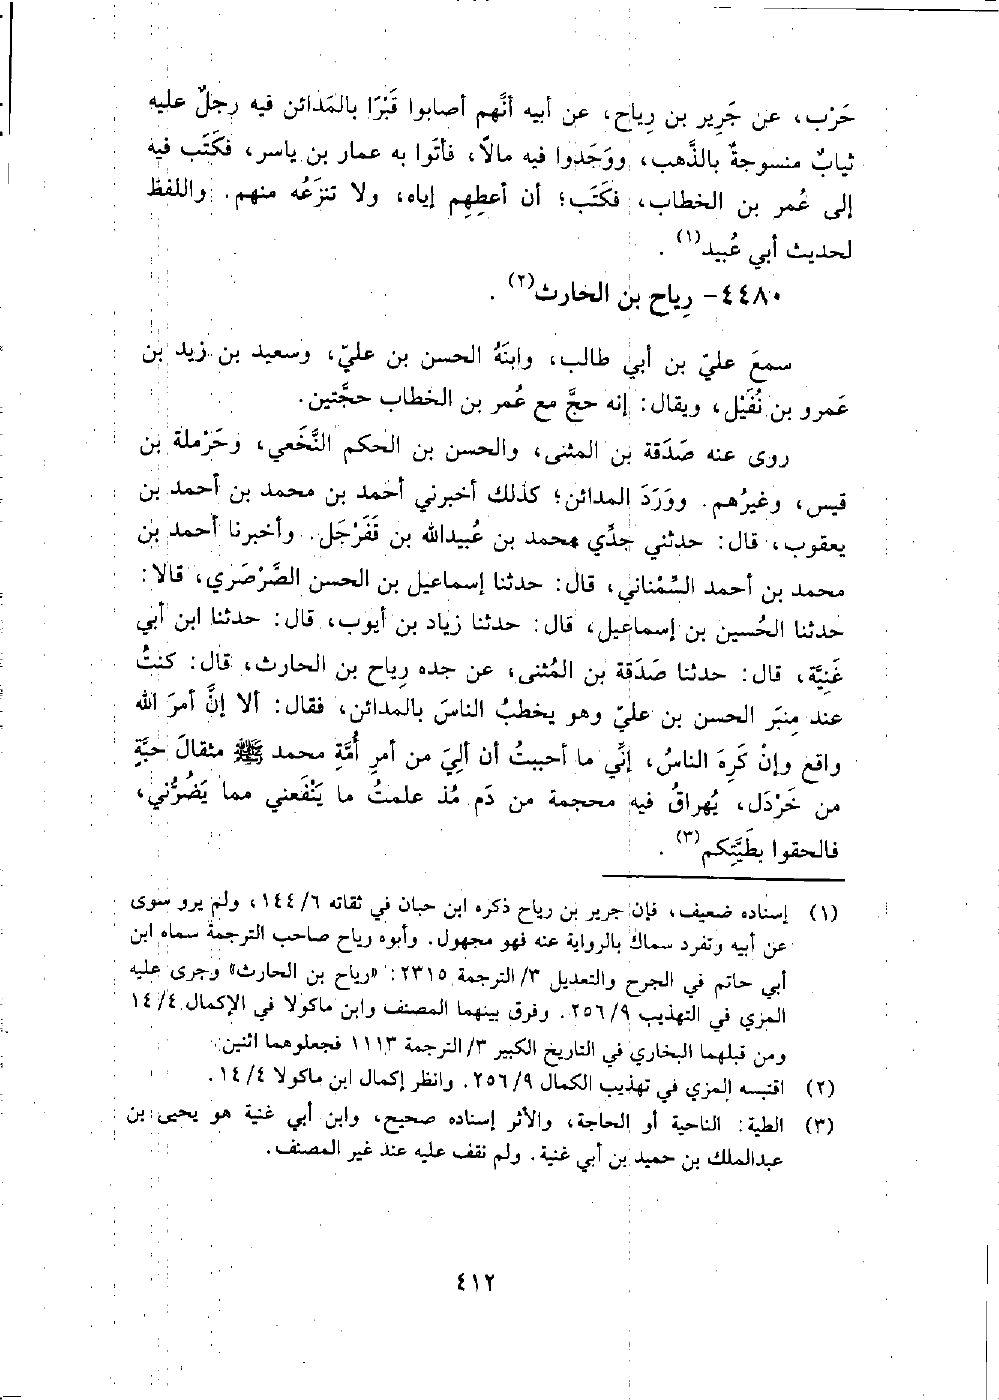 حَرْب، عن جَرِير بن رِياح، عن أبيه أنَّهم أصابوا قَبْرًا بالمَدائن فيه رجلٌ عليه
ثيابٌ منسوجةٌ بالذَّهب، ووَجَدوا فيه مالًا، فأتَوا به عمار بن ياسر، فكَتَب فيه
إلى عُمر بن الخطاب، فكَتَب؛ أن أعطِهِم إياه، ولا تنزَعُه منهم. واللفظ
لحديث أبي عُبيد(١).
٤٤٨٠- رِياح بن الحارث(٢).
سمعَ عليّ بن أبي طالب، وابنَهُ الحسن بن عليّ، وسعيد بن زيد بن
عَمرو بن نُفَيْل، ويقال: إنه حجَّ مع عُمر بن الخطاب حجَّتين.
روى عنه صَدَقة بن المثنى، والحسن بن الحكم النَّخَعي، وحَرْملة بن
قيس، وغيرُهم. ووَرَدَ المدائن؛ كذلك أخبرني أحمد بن محمد بن أحمد بن
يعقوب، قال: حدثني جدِّي محمد بن عُبيدالله بن قَفَرْجَل. وأخبرنا أحمد بن
محمد بن أحمد السِّمْناني، قال: حدثنا إسماعيل بن الحسن الصَّرْصَري، قالا:
حدثنا الحُسين بن إسماعيل، قال: حدثنا زياد بن أيوب، قال: حدثنا ابن أبي
غَنِيَّة، قال: حدثنا صَدَقة بن المُثنى، عن جده رِياح بن الحارث، قال: كنتُ
عند مِنبَر الحسن بن عليّ وهو يخطبُ الناسَ بالمدائن، فقال: ألا إنَّ أمرَ الله
واقع وإنْ كَرِهَ الناسُ، إنِّي ما أحببتُ أن أليَ من أمرِ أُمَّةِ محمد ﷺ مثقالَ حبَّةٍ
من خَرْدَل، يُهراقُ فيه محجمة من دَم مُذ علمتُ ما يَنْفَعني مما يَضُرُّني،
فالحقوا بطَيَّتِكم(٣).
(١) إسناده ضعيف، فإن جرير بن رياح ذكره ابن حبان في ثقاته ٦/ ١٤٤، ولم يرو سوى
عن أبيه وتفرد سماك بالرواية عنه فهو مجهول. وأبوه رياح صاحب الترجمة سماه ابن
أبي حاتم في الجرح والتعديل ٣/ الترجمة ٢٣١٥: «رياح بن الحارث» وجرى عليه
المزي في التهذيب ٩/ ٢٥٦. وفرق بينهما المصنف وابن ماكولا في الإكمال ٤/ ١٤
ومن قبلهما البخاري في التاريخ الكبير ٣/ الترجمة ١١١٣ فجعلوهما اثنين.
(٢) اقتبسه المزي في تهذيب الكمال ٩/ ٢٥٦. وانظر إكمال ابن ماكولا ٤/ ١٤.
(٣) الطية: الناحية أو الحاجة، والأثر إسناده صحيح، وابن أبي غنية هو يحيى بن
عبدالملك بن حميد بن أبي غنية. ولم نقف عليه عند غير المصنف.
٤١٢